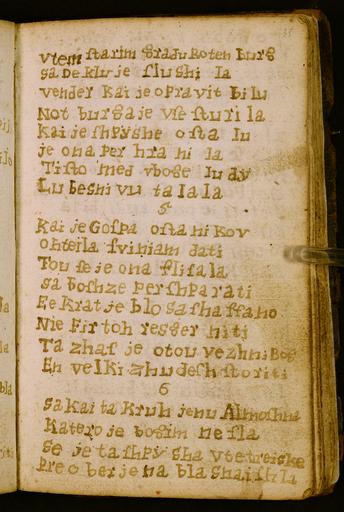 vtem ſtarim gradu Roten burg
ga Deklu je ſlushi la
vender Kai je opravit bi lu
Not burgaje vſe ſturi la
Kai je ſhpyshe oſta lu
je ona per hra ni la
Tiſto med vboge ludy
Lu besni vu ta la la
5
Kai je Goſpa oſtani Kov
ohteila ſviniam dati
Tou ſe je ona ſliſala
sa boſhze perſhparati
Ee Krat je blo ga ſha
Nie Fir toh resger niti
Ta zhaſ je otou vezhni Bog
En velKi zhudeſh ſtoriti
6
sa Kai ta Kruh jenu Almoshna
Katero je bogim neſla
Se je ta ſhpysha vtetreiske
Pre o ber je na bla